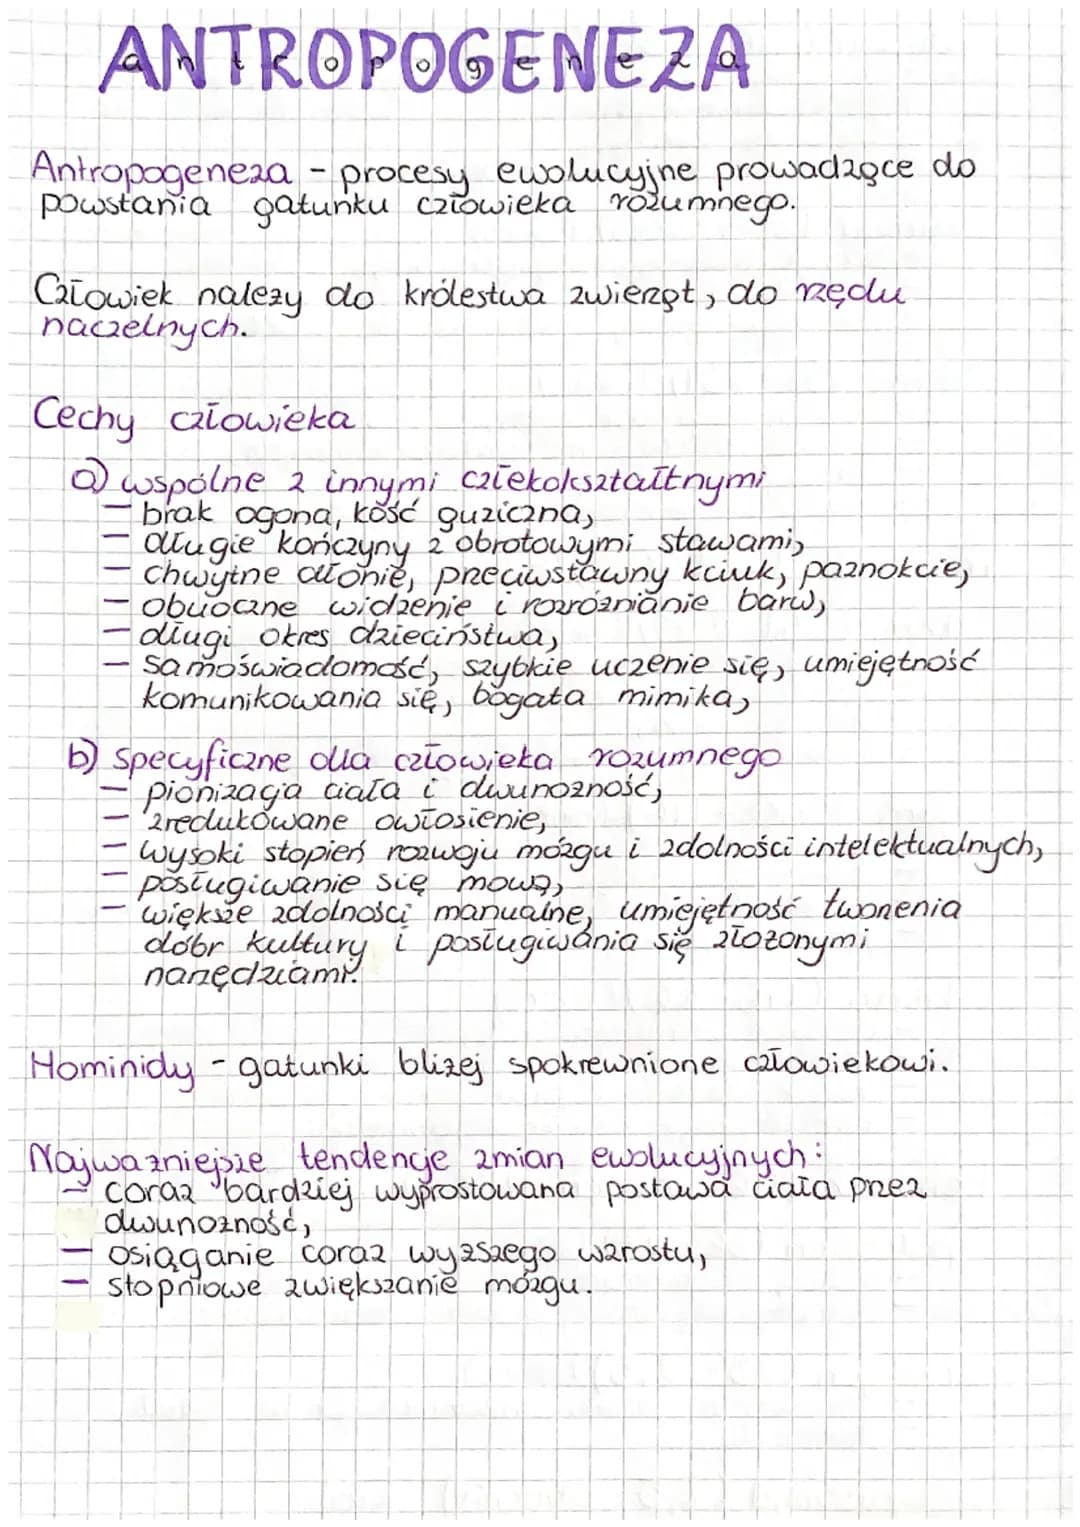 ANTROPOGENEZA
antropogeneza
Antropogeneza - procesy ewolucyjne prowadzące do
powstania gatunku człowieka rozumnego.
Człowiek należy do królestwa zwierząt, do rzędu
naczelnych.
Cechy człowieka
a) wspólne z innymi człekokształtnymi
- brak ogona, kość guziczna,
- długie kończyny z obrotowymi stawami,
- chwytne dłonie, przeciwstawny kciuk, paznokcie,
- obuoczne widzenie i rozróżnianie barw,
- długi okres dzieciństwa,
- samoświadomość, szybkie uczenie się, umiejętność
komunikowania się, bogata mimika,
b) specyficzne dla człowieka rozumnego
- pionizacja ciała i dwunożność,
- zredukowane owłosienie,
- wysoki stopień rozwoju mózgu i zdolności intelektualnych,
- posługiwanie się mową,
- większe zdolności manualne, umiejętność tworzenia
dóbr kultury i posługiwania się złożonymi
narzędziami.
Hominidy - gatunki bliżej spokrewnione człowiekowi.
Najważniejsze tendencje zmian ewolucyjnych:
- coraz bardziej wyprostowana postawa ciała przez
dwunożność,
- osiąganie coraz wyższego wzrostu,
- stopniowe zwiększanie mózgu.